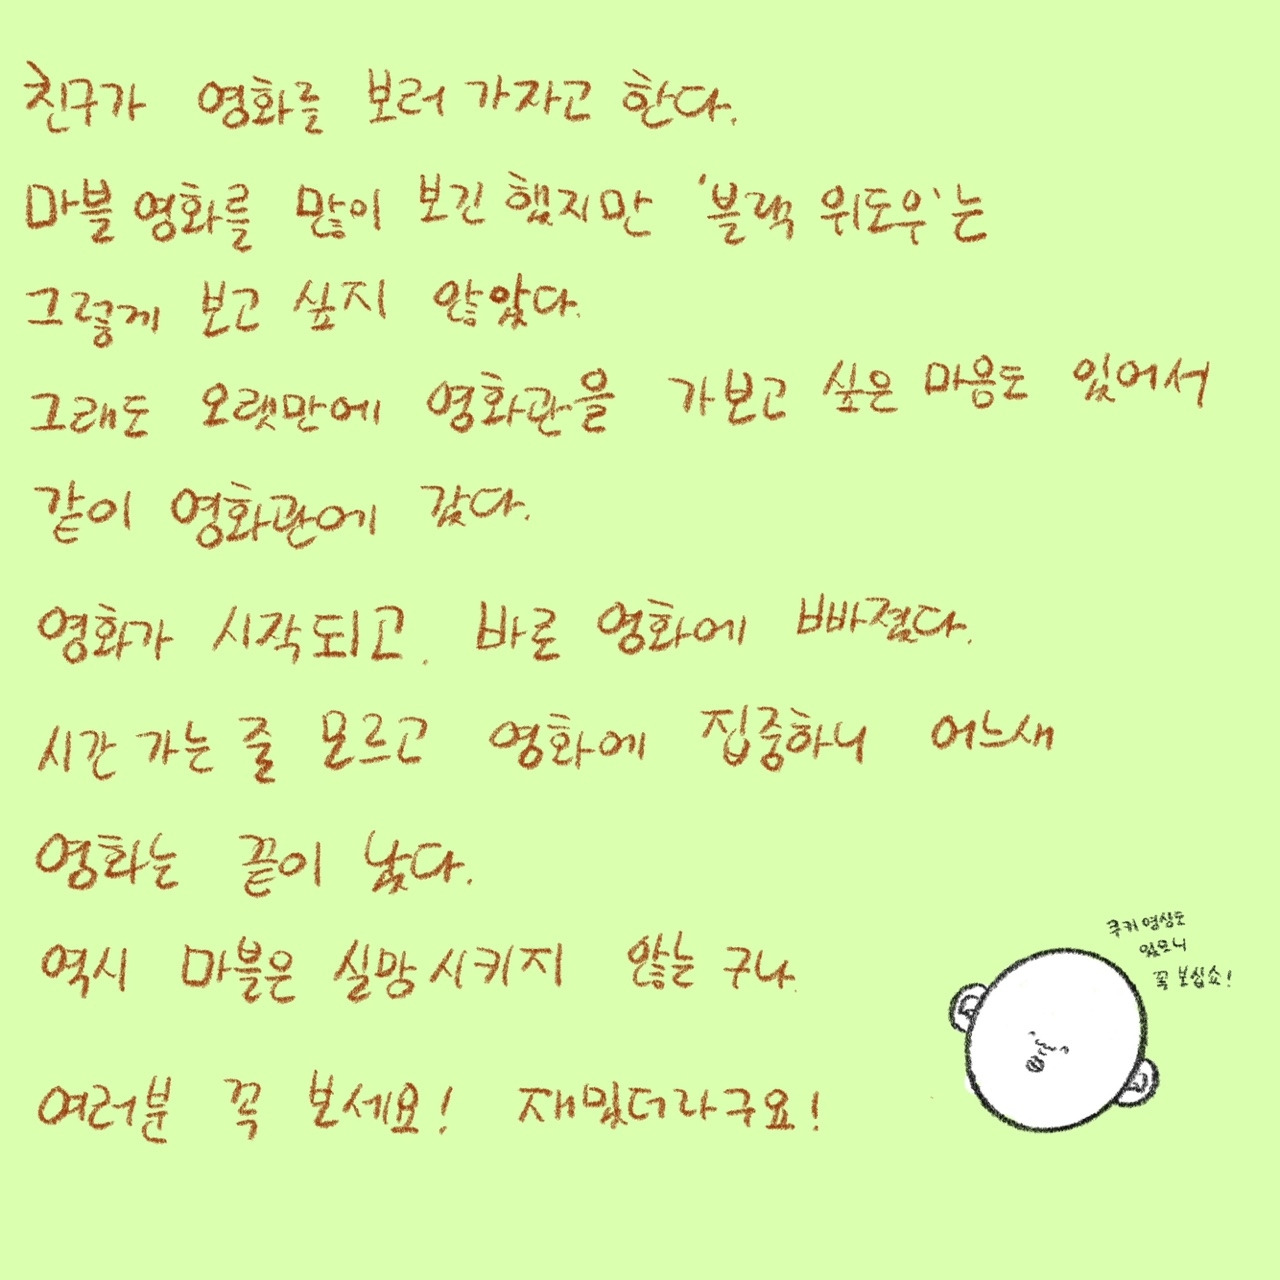 친구가 영화를 보러 가자고 한다.
마블 영화를 많이 보긴 했지만 '블랙 위도우'는
그렇게 보고 싶지 않았다.
그래도 오랫만에 영화관을 가보고 싶은 마음도 있어서
같이 영화관에 갔다.
영화가 시작되고. 바로 영화에 빠졌다.
시간 가는 줄 모르고 영화에 집중하니 어느새
영화는 끝이 났다.
역시 마블은 실망시키지 않는 구나.
여러분 꼭 보세요! 재밌더라구요!
쿠키 영상도
있으니
꼭 보십쇼!